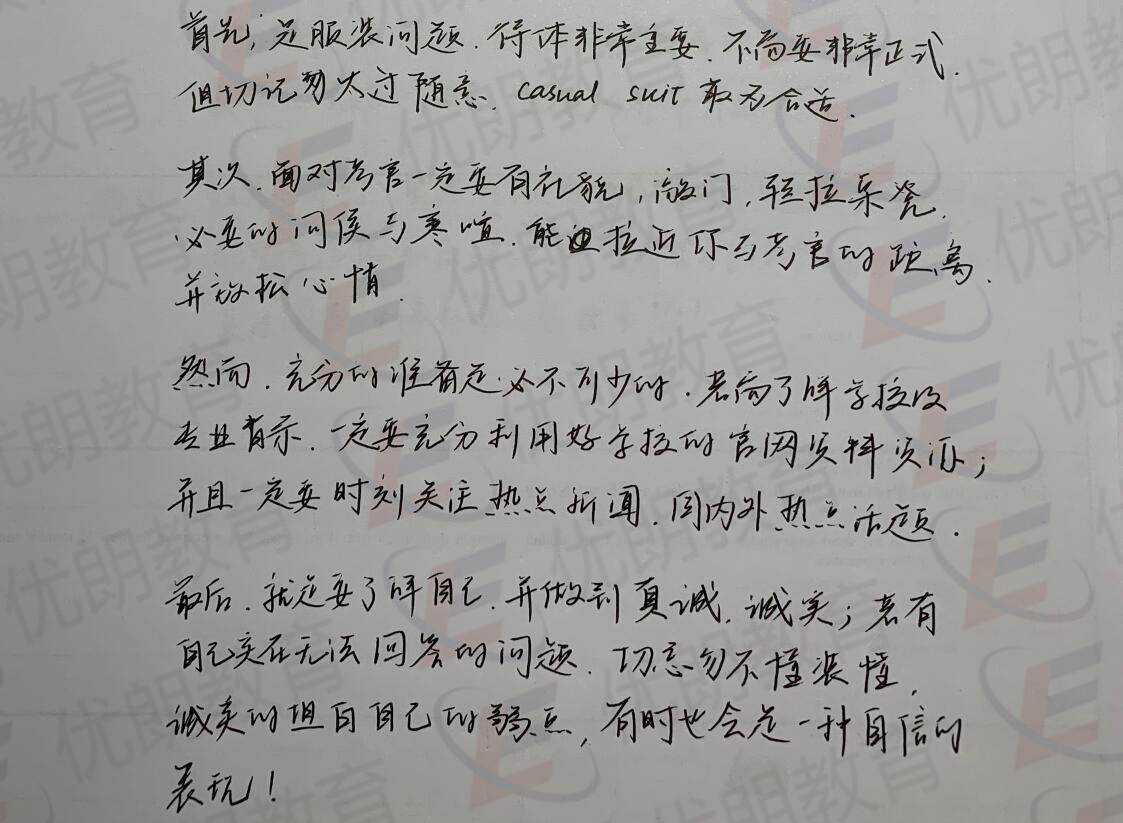 首先，是服装问题．得体非常主要．不需要非常正式．
但切记勿太过随意．casual suit 最为合适．
其次．面对考官一定要有礼貌，敲门，轻拉桌凳．
必要的问候与寒喧．能拉近你与考官的距离．
并放松心情．
然而．充分的准备是必不可少的．若需了解学校及
专业有示．一定要充分利用好学校的官网资料资源；
并且一定要时刻关注热点新闻．国内外热点话题．
最后．就是要了解自己．并做到真诚．诚实；若有
自己实在无法回答的问题．切忌勿不懂装懂．
诚实的坦白自己的弱点，有时也会是一种自信的
表现！
优朗教育
优朗教育
优朗教育
优朗教育
优朗教育
优朗教育
优朗教育
优朗教育